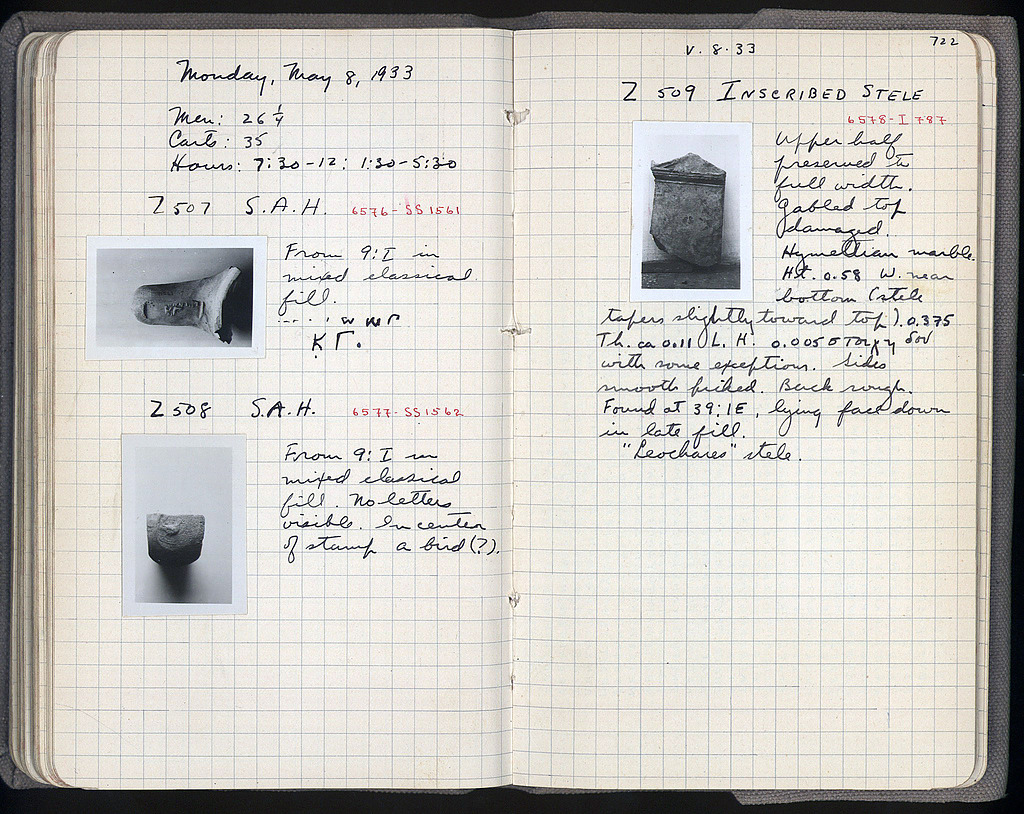 Monday, May 8, 1933
Men: 26 1/4
Carts: 35
Hours: 7:30-12: 1:30-5:30
Z 507 S.A.H. 6576-SS 1561
From 9:I in
mixed classical
fill.
ΚΓ.
Z 508 S.A.H. 6577-SS 1562
From 9:I in
mixed classical
fill. No letters
visible. In center
of stamp a bird (?).
722
V.8.33
Z 509 INSCRIBED STELE
6578-I 787
Upper half
preserved to
full width.
Gabled top
damaged.
Hymettian marble.
Ht. 0.58 W. near
bottom (stele
tapers slightly toward top). 0.375
Th. ca 0.11 L. H. 0.005
with some exceptions. Sides
smooth picked. Back rough.
Found at 39:IE, lying face down
in late fill.
"Leochares" stele.